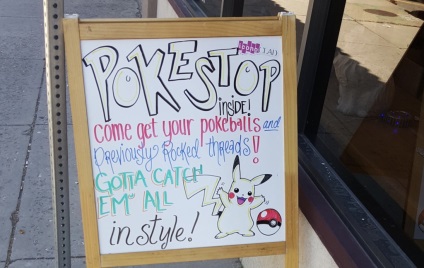 POKESTOP
inside!
Come get your pokeballs and
previously rocked threads!
GOTTA CATCH
EM ALL
in style!